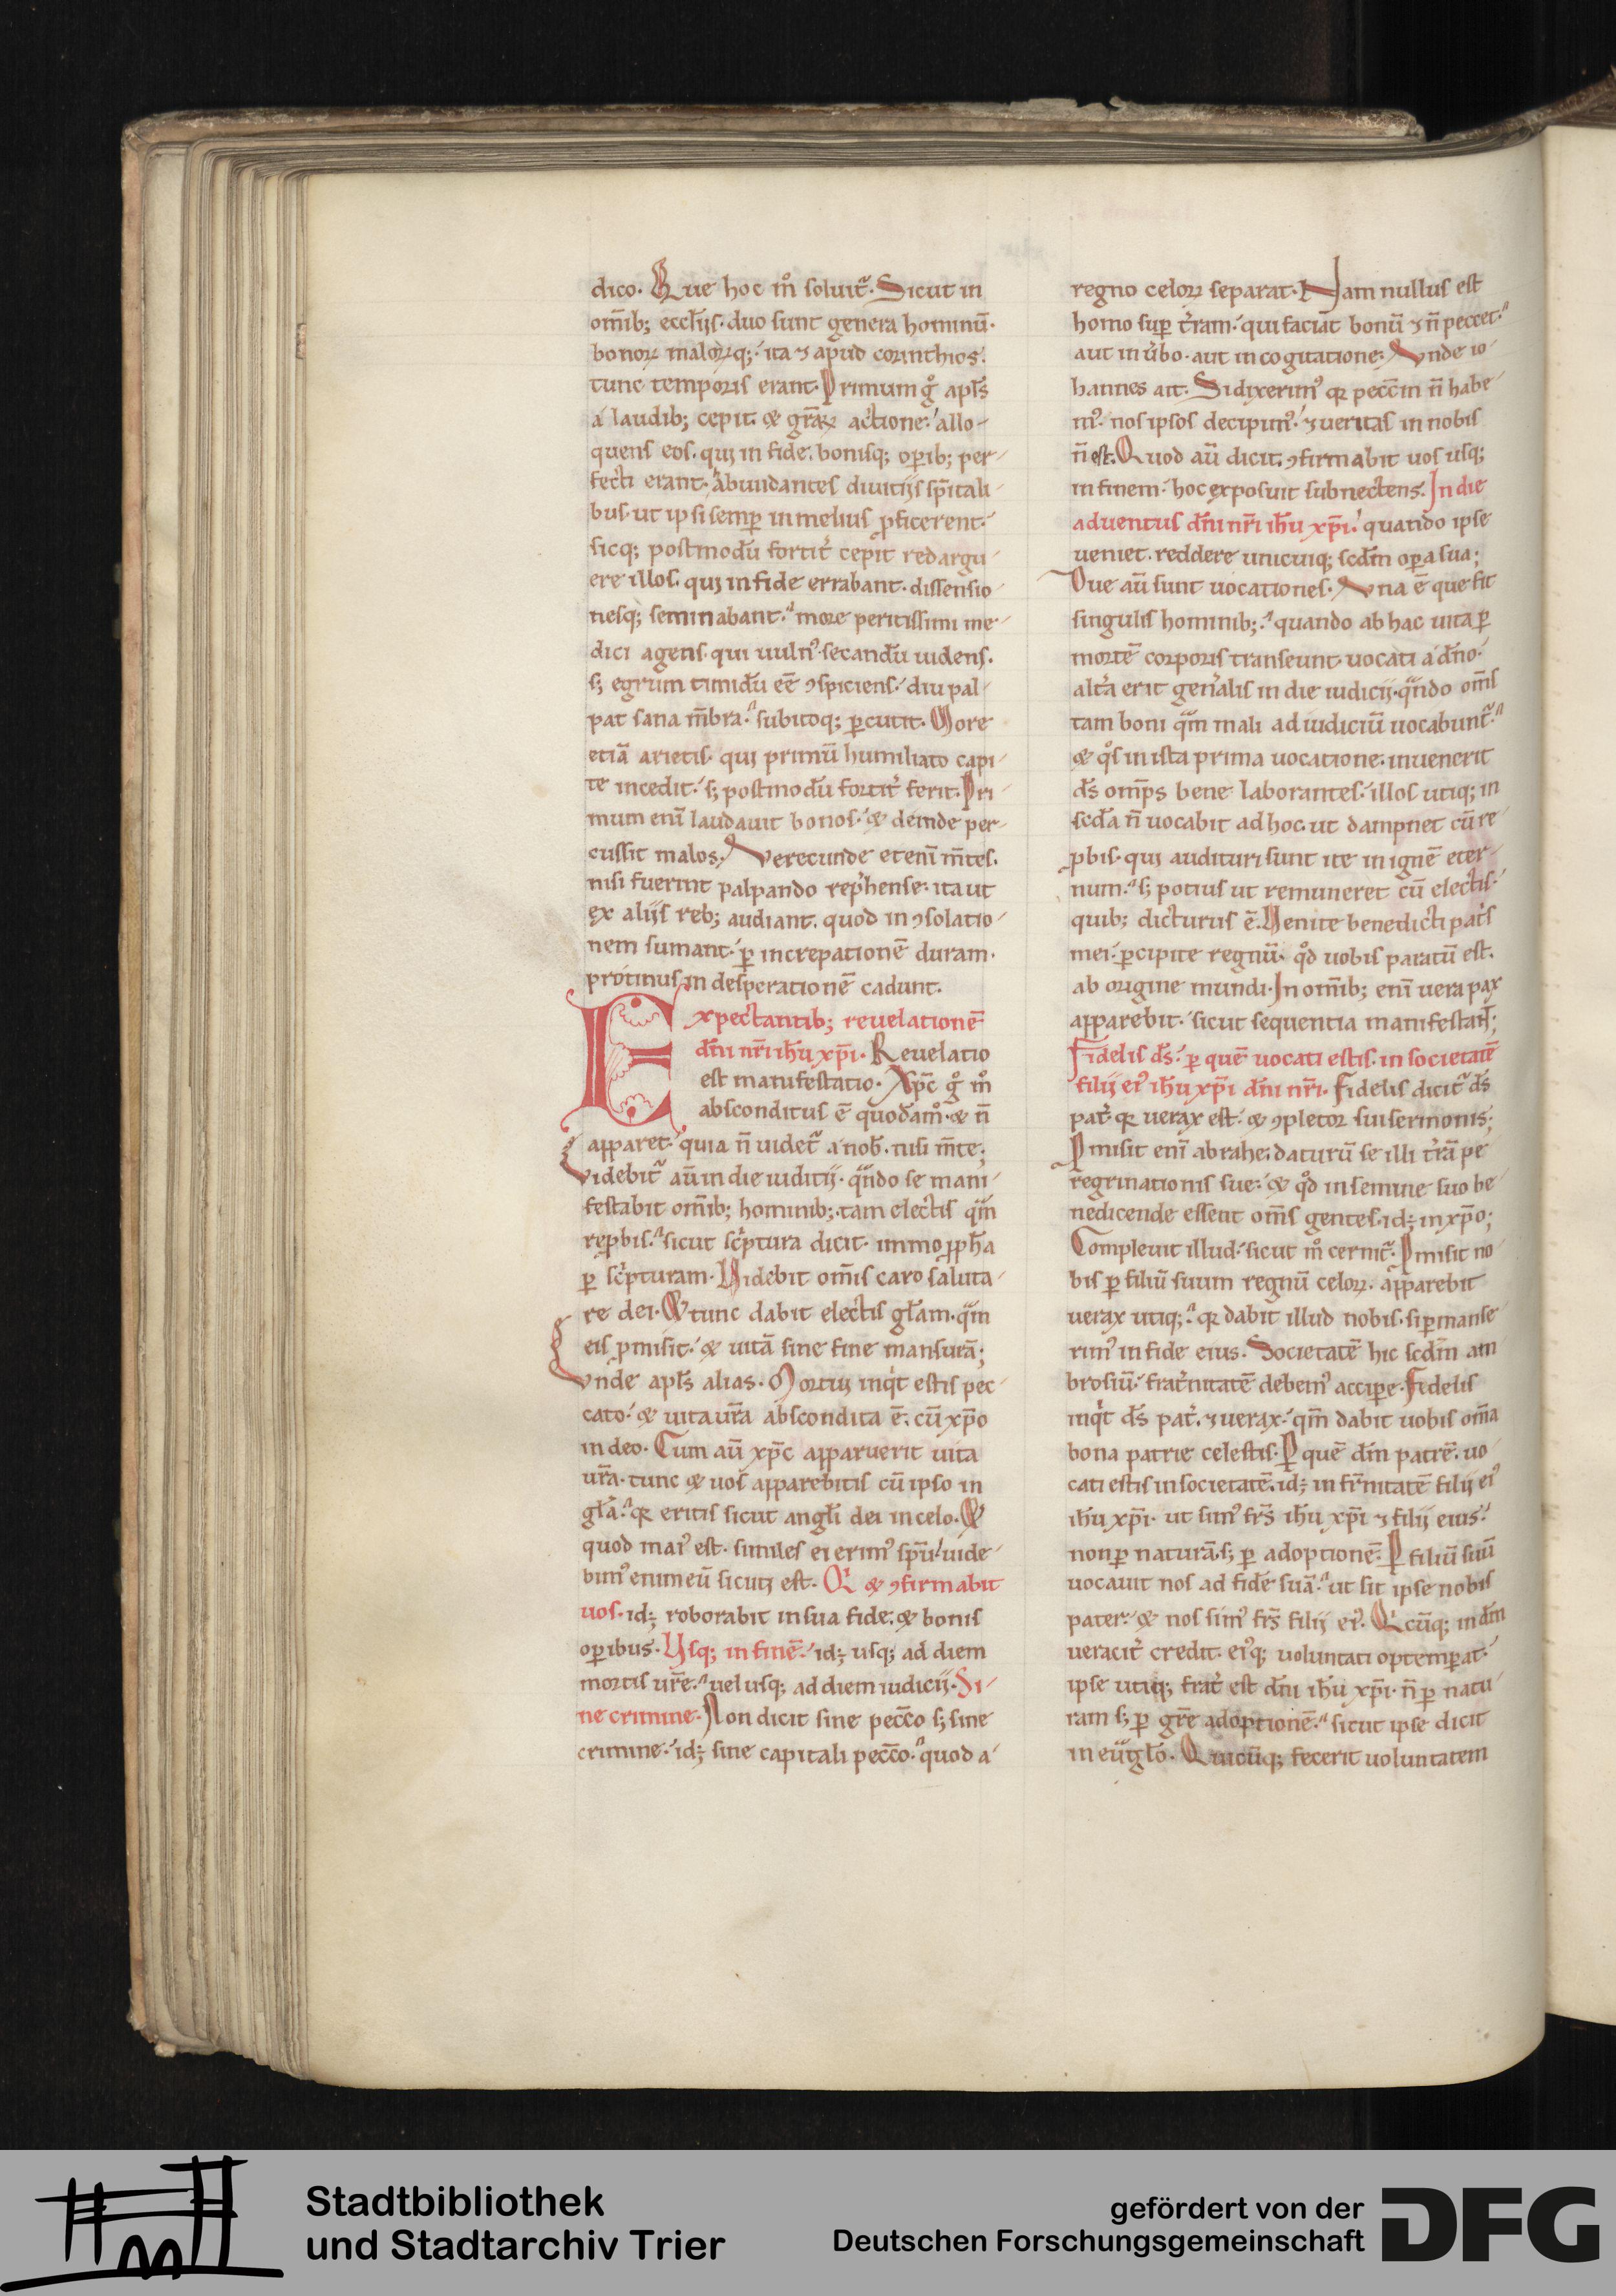 dico. Que hoc m̊ soluit᷑. Sicut in
om̅ib; eccl̅ijs. duo sunt genera hominū.
bonoꝝ maloꝝq; ita ⁊ apud corinthios.
tunc temporis erant. Primum g̊ apl̅s
a laudib; cepit. & gr̅aꝝ actione. allo-
quens eos. qui in fide. bonisq; oꝑib; per-
fecti erant. abundantes diuitijs sp̅itali-
bus. ut ipsi semꝑ in melius ꝓficerent.
sicq; postmodū fortit̓ cepit redargu-
ere illos. qui in fide errabant. dissensio-
nesq; seminabant. more peritissimi me-
dici agens. qui uuln᷒ secandū uidens.
s; egrum timidū ee̅ ꝯspiciens. diu pal-
pat sana m̅bra. subitoq; ꝑcutit. More
etiā arietis. qui primū humiliato capi-
te incedit. s; postmodū fortit̓ ferit. Pri-
mum eni̅ laudauit bonos. & deinde per-
cussit malos. Verecunde eteni̅ m̅tes.
nisi fuerint palpando rep̓hense. ita ut
ex alijs reb; audiant. quod in ꝯsolatio-
nem sumant. ꝑ increpationē duram.
protinus in desperationē cadunt.
Expectantib; reuelationē
dn̅i nr̅i ih̅u xp̅i. Reuelatio
est manifestatio. Xp̅c g̊ m̊
absconditus ē quodam̊. & n̅
apparet. quia n̅ uidet᷑ a nob̅. nisi m̅te;
Videbit᷑ au̅ in die iudicij. qͣndo se mani-
festabit om̅ib; hominib;. tam electis qͣm
reꝓbis. sicut sc̓ptura dicit. immo ꝓph̅a
ꝑ sc̓pturam. Videbit om̅is caro saluta-
re dei. Et tunc dabit electis gl̅am. qͣm
eis ꝓmisit. & uitā sine fine mansurā;
Vnde apl̅s alias. Mortui inqͥt estis pec-
cato. & uita ur̅a abscondita ē. cū xp̅o
in deo. Cum au̅ xp̅c apparuerit uita
ur̅a. tunc & uos apparebitis cū ipso in
gl̅a. qꝛ eritis sicut angl̅i dei in celo. Et
quod mai᷒ est. similes ei erim᷒ sp̅u. uide-
bim᷒ enim eū sicuti est. Qͥ & ꝯfirmabit
uos. id; roborabit in sua fide. & bonis
oꝑibus. Vsq; in finē. id; usq; ad diem
mortis ur̅e. uel usq; ad diem iudicij. Si-
ne crimine. Non dicit sine pecc̅o s; sine
crimine. id; sine capitali pecc̅o. quod a
regno celoꝝ separat. Nam nullus est
homo suꝑ t̓ram. qui faciat bonū ⁊ n̅ peccet.
aut in u̓bo. aut in cogitatione. Vnde io-
hannes ait. Si dixerim᷒ qꝛ pecc̅m n̅ habe-
m᷒. nos ipsos decipim᷒. ⁊ ueritas in nobis
n̅ est. Quod au̅ dicit. ꝯfirmabit uos usq;
in finem. hoc exposuit subnectens. In die
aduentus dn̅i nr̅i ih̅u xp̅i. quando ipse
ueniet. reddere unicuiq; scd̅m oꝑa sua;
Due au̅ sunt uocationes. Vna ē que fit
singulis hominib;. quando ab hac uita ꝑ
mortē corporis transeunt uocati a dn̅o.
alt̓a erit gen̓alis in die iudicij. qͣndo om̅s
tam boni qͣm mali ad iudiciū uocabunt᷑.
& qͦs in ista prima uocatione. inuenerit
ds̅ omp̅s bene laborantes. illos utiq; in
scd̅a n̅ uocabit ad hoc. ut dampnet cū re-
ꝓbis. qui audituri sunt ite in ignē eter-
num. s; potius ut remuneret cū electis.
quib; dicturus ē. Venite benedicti pat̓s
mei. ꝑcipite regnū. qͦd uobis paratū est.
ab origine mundi. In om̅ib; eni̅ uera pax
apparebit. sicut sequentia manifestant̅;
Fidelis ds̅. ꝑ quē uocati estis. in societatē
filij ei᷒ ih̅u xp̅i dn̅i nr̅i. Fidelis dicit᷑ ds̅
pat̓. qꝛ uerax est. & ꝯpletor sui sermonis;
Ꝓmisit eni̅ abrahe. daturū se illi t̓rā pe-
regrinationis sue. & qͦd in semine suo be-
nedicende essent om̅s gentes. id; in xp̅o;
Compleuit illud. sicut m̊ cernit᷑. Ꝓmisit no-
bis ꝑ filiū suum regnū celoꝝ. apparebit
uerax utiq;. qꝛ dabit illud nobis. si ꝑmanse-
rim᷒ in fide eius. Societatē hic scd̅m am-
brosiū. frat̓nitatē debem᷒ acciꝑe. Fidelis
inqͥt ds̅ pat̓. ⁊ uerax. qm̅ dabit uobis om̅a
bona patrie celestis. Ꝑ quē dm̅ patrē. uo-
cati estis in societatē. id; in fr̅nitatē filij ei᷒
ih̅u xp̅i. ut sim᷒ frs̅ ih̅u xp̅i ⁊ filij eius.
non ꝑ naturā. s; ꝑ adoptionē. Ꝑ filiū suū
uocauit nos ad fidē suā. ut sit ipse nobis
pater. & nos sim᷒ frs̅ filij ei᷒. Qͥcūq; in dm̅
ueracit̓ credit. ei᷒q; uoluntati optemꝑat.
ipse utiq; frat̓ est dn̅i ih̅u xp̅i. n̅ ꝑ natu-
ram s; ꝑ gr̅e adoptionē. sicut ipse dicit
in eūgl̅o. Quicūq; fecerit uoluntatem
Stadtbibliothek
und Stadtarchiv Trier
gefördert von der
Deutschen Forschungsgemeinschaft
DFG